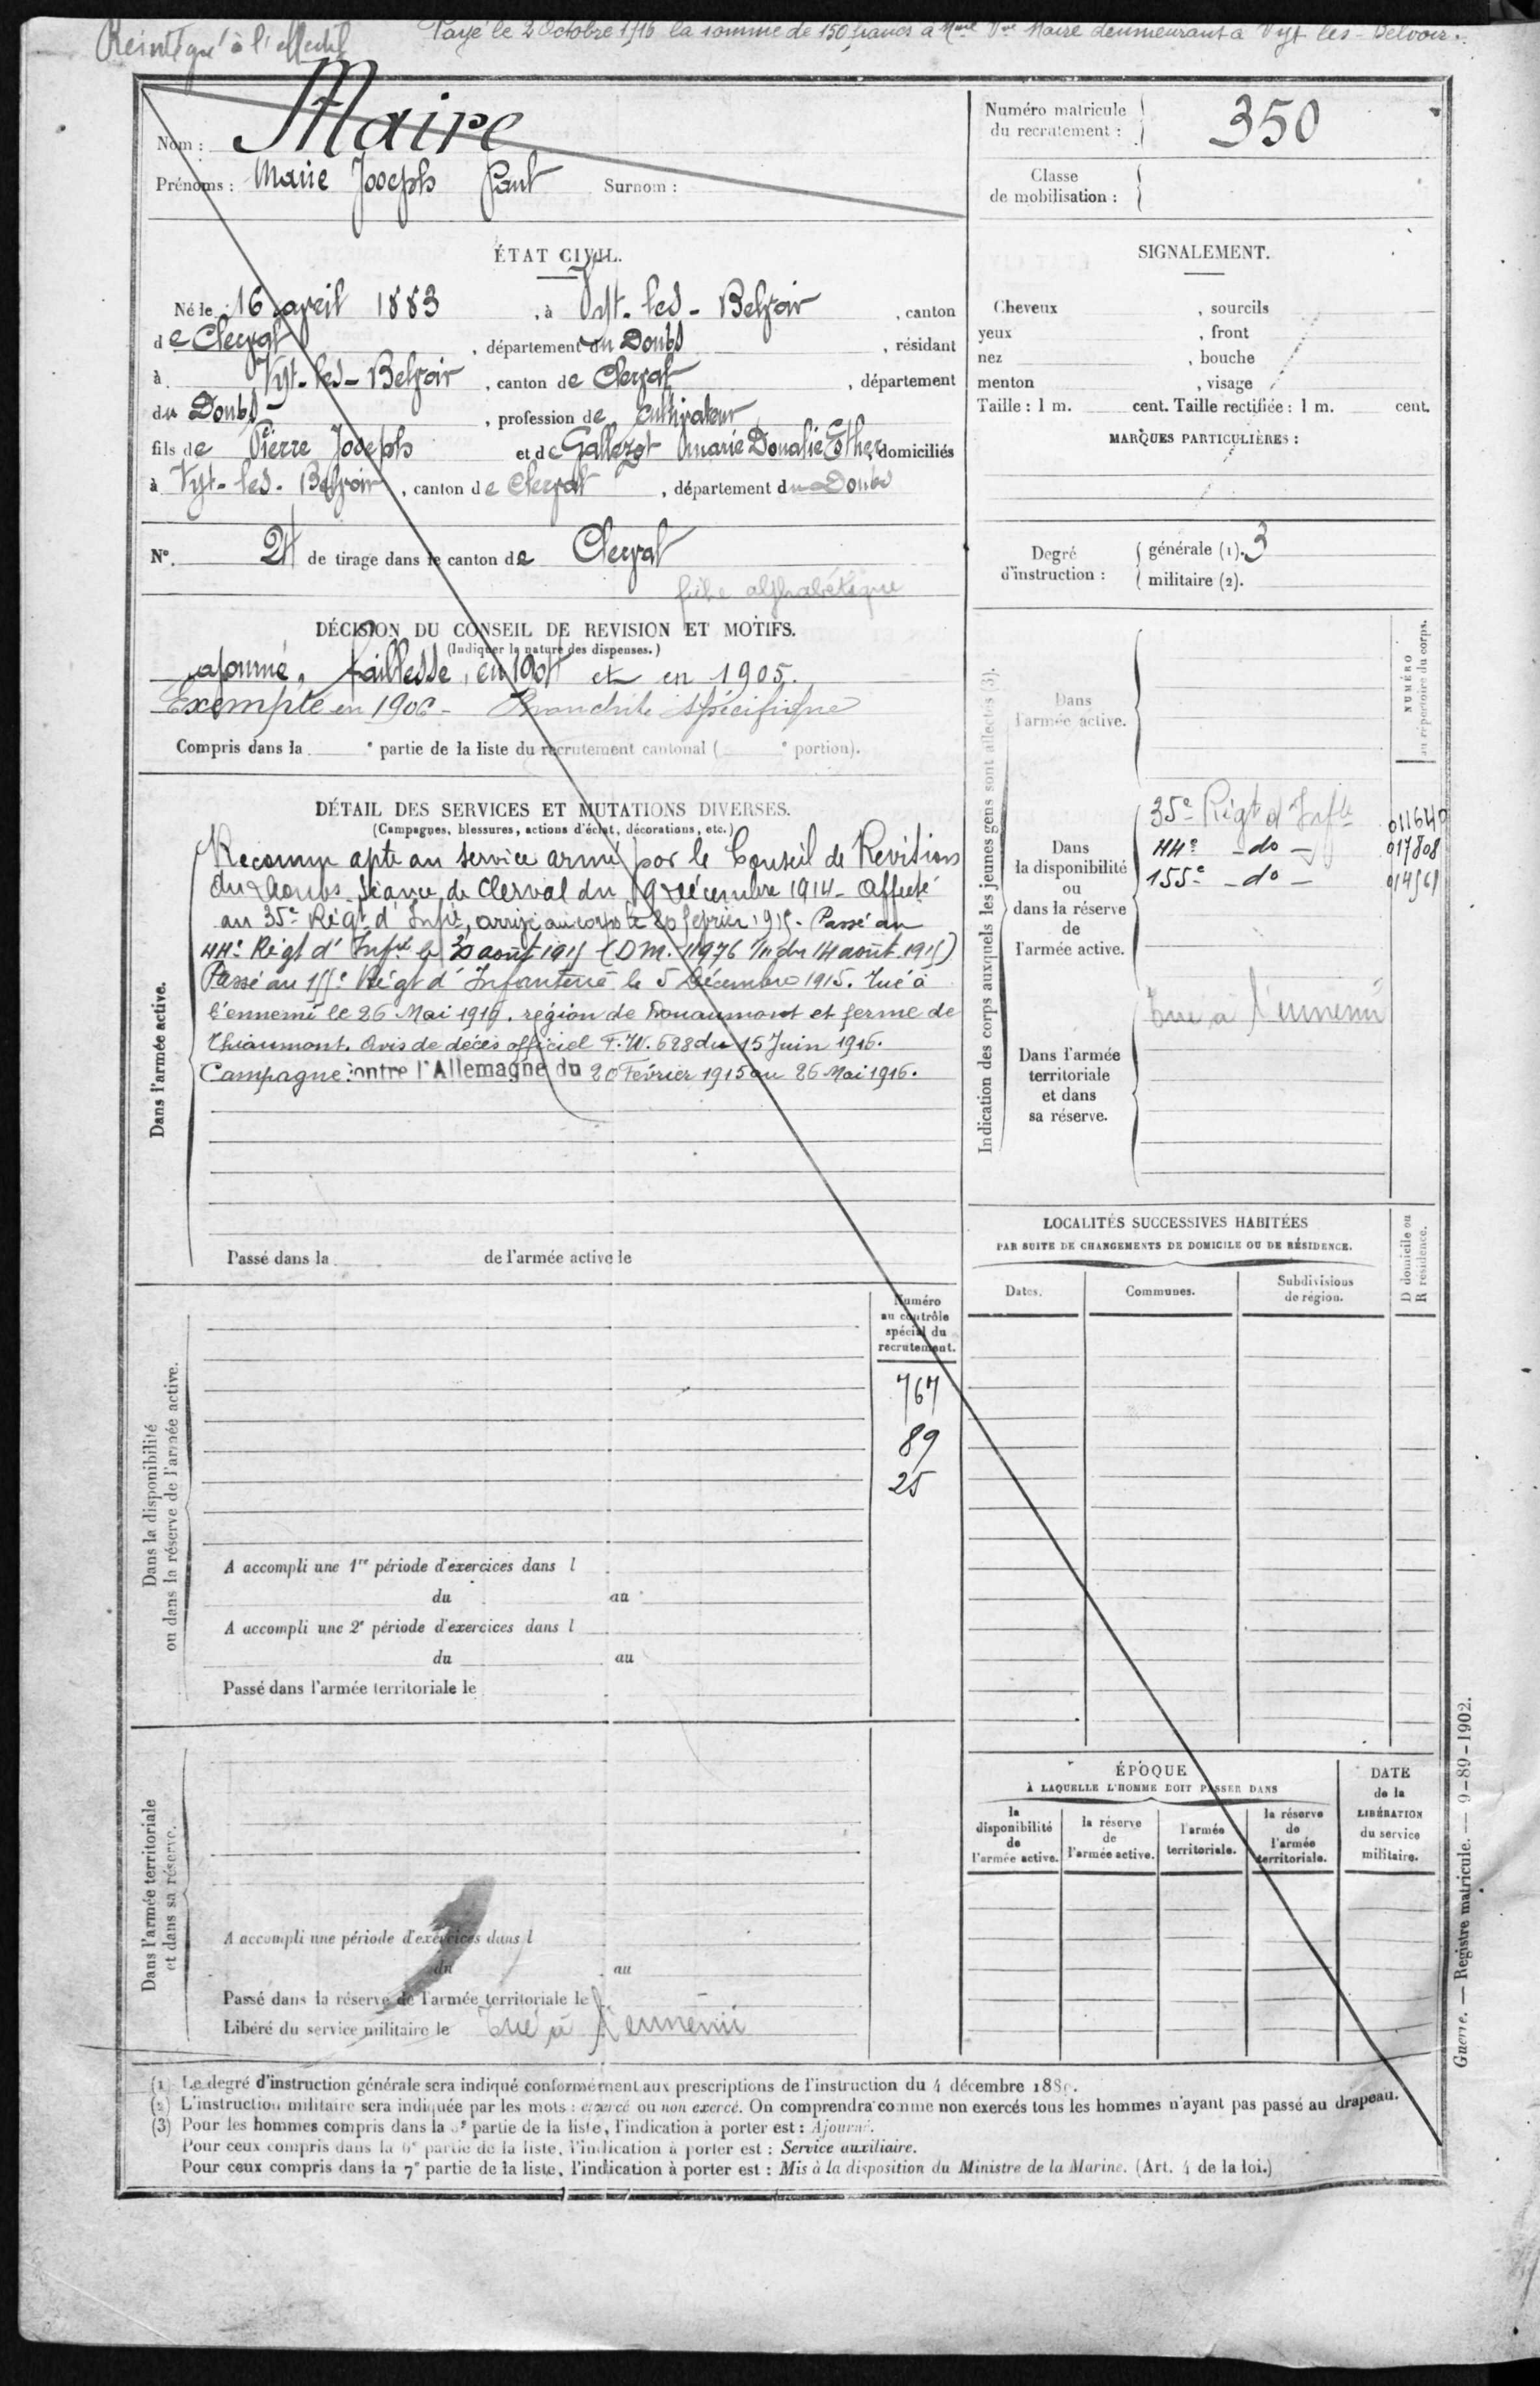 Reintégré à l'effectif
Payé le 2 Octobre 1916 la somme de 150 francs à Mme Vve Maire demeurant à Vyt les-Belvoir.
Nom : Maire
Prénoms : Marie Joseph Paul Surnom :
Numéro matricule du recrutement : 350
Classe de mobilisation :
ÉTAT CIVIL.
Né le 16 avril 1883, à Vyt-les-Belvoir, canton
de Clerval, département du Doubs, résidant
à Vyt-les-Belvoir, canton de Clerval, département
du Doubs, profession de cultivateur
fils de Pierre Joseph et de Gallezot Marie Donalie Esther, domiciliés
à Vyt-les-Belvoir, canton de Clerval, département du Doubs
N° 24 de tirage dans le canton de Clerval
fiche alphabétique
SIGNALEMENT.
Cheveux , sourcils
yeux , front
nez , bouche
menton , visage
Taille : 1 m. cent. Taille rectifiée : 1 m. cent.
MARQUES PARTICULIÈRES :
Degré d'instruction : générale (1). 3
militaire (2).
DÉCISION DU CONSEIL DE REVISION ET MOTIFS.
(Indiquer la nature des dispenses.)
ajourné, faiblesse, en 1904 et en 1905.
Exempté en 1906 - Bronchite spécifique
Compris dans la e partie de la liste du recrutement cantonal ( e portion).
DÉTAIL DES SERVICES ET MUTATIONS DIVERSES.
(Campagnes, blessures, actions d'éclat, décorations, etc.)
Dans l'armée active.
Reconnu apte au service armé par le Conseil de Revision
du Doubs séance de Clerval du 19 décembre 1914 - Affecté
au 35e Régt d'Infie, arrivé au corps le 20 février 1915 - Passé au
44e Régt d'Infie le 30 août 1915 (DM. 11976 1/11 du 14 août 1915)
Passé au 155e Régt d'Infanterie le 5 Décembre 1915. Tué à
l'ennemi le 26 Mai 1916. région de Douaumont et ferme de
Thiaumont. Avis de décès officiel F.W. 628 du 15 Juin 1916.
Campagne : contre l'Allemagne du 20 Février 1915 au 26 Mai 1916.
Passé dans la de l'armée active le
Indication des corps auxquels les jeunes gens sont affectés (3).
NUMÉRO au répertoire du corps.
Dans l'armée active.
Dans la disponibilité ou dans la réserve de l'armée active.
35e Régt d'Infie 011640
44e - do - 017808
155e - do - 014561
Dans l'armée territoriale et dans sa réserve.
Tué à l'ennemi
LOCALITÉS SUCCESSIVES HABITÉES
PAR SUITE DE CHANGEMENTS DE DOMICILE OU DE RÉSIDENCE.
D domicile ou R résidence.
Dates. Communes. Subdivisions de région.
Dans la disponibilité ou dans la réserve de l'armée active.
Numéro au contrôle spécial du recrutement.
767
89
25
A accompli une 1re période d'exercices dans l
du au
A accompli une 2e période d'exercices dans l
du au
Passé dans l'armée territoriale le
Dans l'armée territoriale et dans sa réserve.
A accompli une période d'exercices dans l
du au
Passé dans la réserve de l'armée territoriale le
Libéré du service militaire le Tué à l'ennemi
ÉPOQUE
À LAQUELLE L'HOMME DOIT PASSER DANS
la disponibilité de l'armée active.
la réserve de l'armée active.
l'armée territoriale.
la réserve de l'armée territoriale.
DATE de la LIBÉRATION du service militaire.
(1) Le degré d'instruction générale sera indiqué conformément aux prescriptions de l'instruction du 4 décembre 1889.
(2) L'instruction militaire sera indiquée par les mots : exercé ou non exercé. On comprendra comme non exercés tous les hommes n'ayant pas passé au drapeau.
(3) Pour les hommes compris dans la 5e partie de la liste, l'indication à porter est : Ajourné.
Pour ceux compris dans la 6e partie de la liste, l'indication à porter est : Service auxiliaire.
Pour ceux compris dans la 7e partie de la liste, l'indication à porter est : Mis à la disposition du Ministre de la Marine. (Art. 4 de la loi.)
Guerre. — Registre matricule. — 9-89-1902.